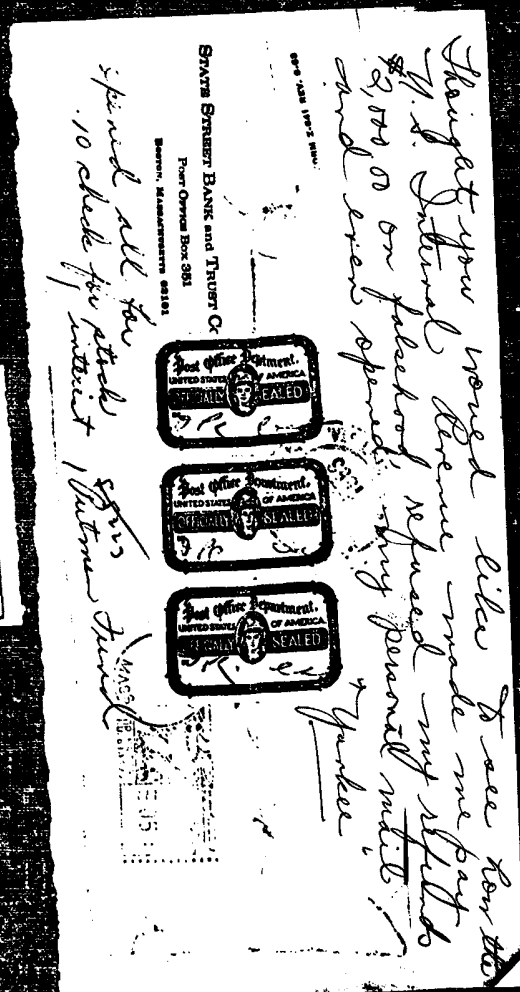 Thought you would like to see how the
U.S. Internal Revenue made me pay
$2,000.00 on falsehood, refused my refunds
and even opened my personal mail,
"Yankee"
STATE STREET BANK and TRUST CO
POST OFFICE BOX 351
BOSTON, MASSACHUSETTS 02101
Post Office Department.
UNITED STATES OF AMERICA
OFFICIALLY SEALED
Post Office Department.
UNITED STATES OF AMERICA
OFFICIALLY SEALED
Post Office Department.
UNITED STATES OF AMERICA
OFFICIALLY SEALED
MASS
all for
.10 check for stock
interest, Putnam Fund